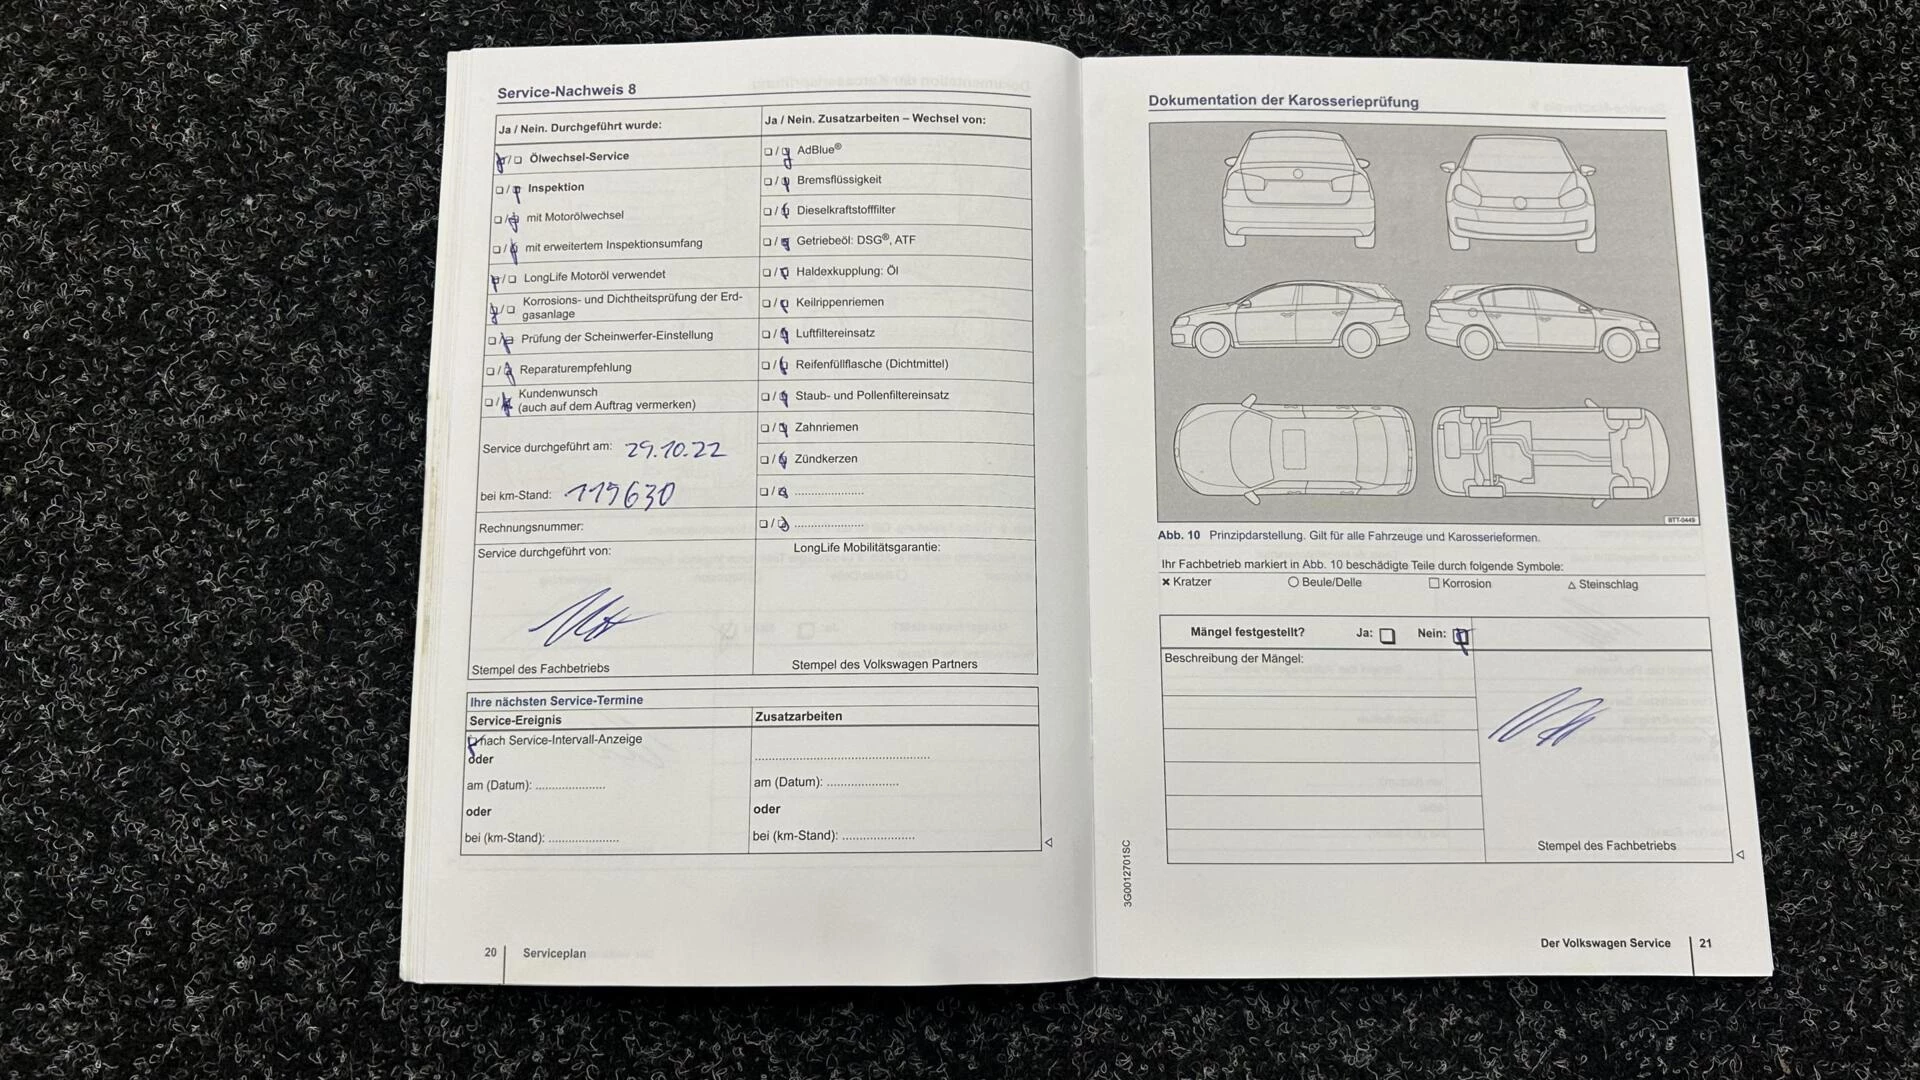 Service-Nachweis 8
Ja / Nein. Durchgeführt wurde:
Ölwechsel-Service
Inspektion
mit Motorölwechsel
mit erweitertem Inspektionsumfang
LongLife Motoröl verwendet
Korrosions- und Dichtheitsprüfung der Erd-
gasanlage
Prüfung der Scheinwerfer-Einstellung
Reparaturempfehlung
Kundenwunsch
(auch auf dem Auftrag vermerken)
Service durchgeführt am: 29.10.22
bei km-Stand: 119630
Rechnungsnummer:
Service durchgeführt von:
Stempel des Fachbetriebs
Ja / Nein. Zusatzarbeiten – Wechsel von:
AdBlue®
Bremsflüssigkeit
Dieselkraftstofffilter
Getriebeöl: DSG®, ATF
Haldexkupplung: Öl
Keilrippenriemen
Luftfiltereinsatz
Reifenfüllflasche (Dichtmittel)
Staub- und Pollenfiltereinsatz
Zahnriemen
Zündkerzen
LongLife Mobilitätsgarantie:
Stempel des Volkswagen Partners
Ihre nächsten Service-Termine
Service-Ereignis
nach Service-Intervall-Anzeige
oder
am (Datum): .....................
oder
bei (km-Stand): .....................
Zusatzarbeiten
am (Datum): .....................
oder
bei (km-Stand): .....................
20 Serviceplan
Dokumentation der Karosserieprüfung
BTT-0449
Abb. 10 Prinzipdarstellung. Gilt für alle Fahrzeuge und Karosserieformen.
Ihr Fachbetrieb markiert in Abb. 10 beschädigte Teile durch folgende Symbole:
✖ Kratzer ○ Beule/Delle □ Korrosion △ Steinschlag
Mängel festgestellt? Ja: Nein:
Beschreibung der Mängel:
Stempel des Fachbetriebs
3G0012701SC
Der Volkswagen Service 21